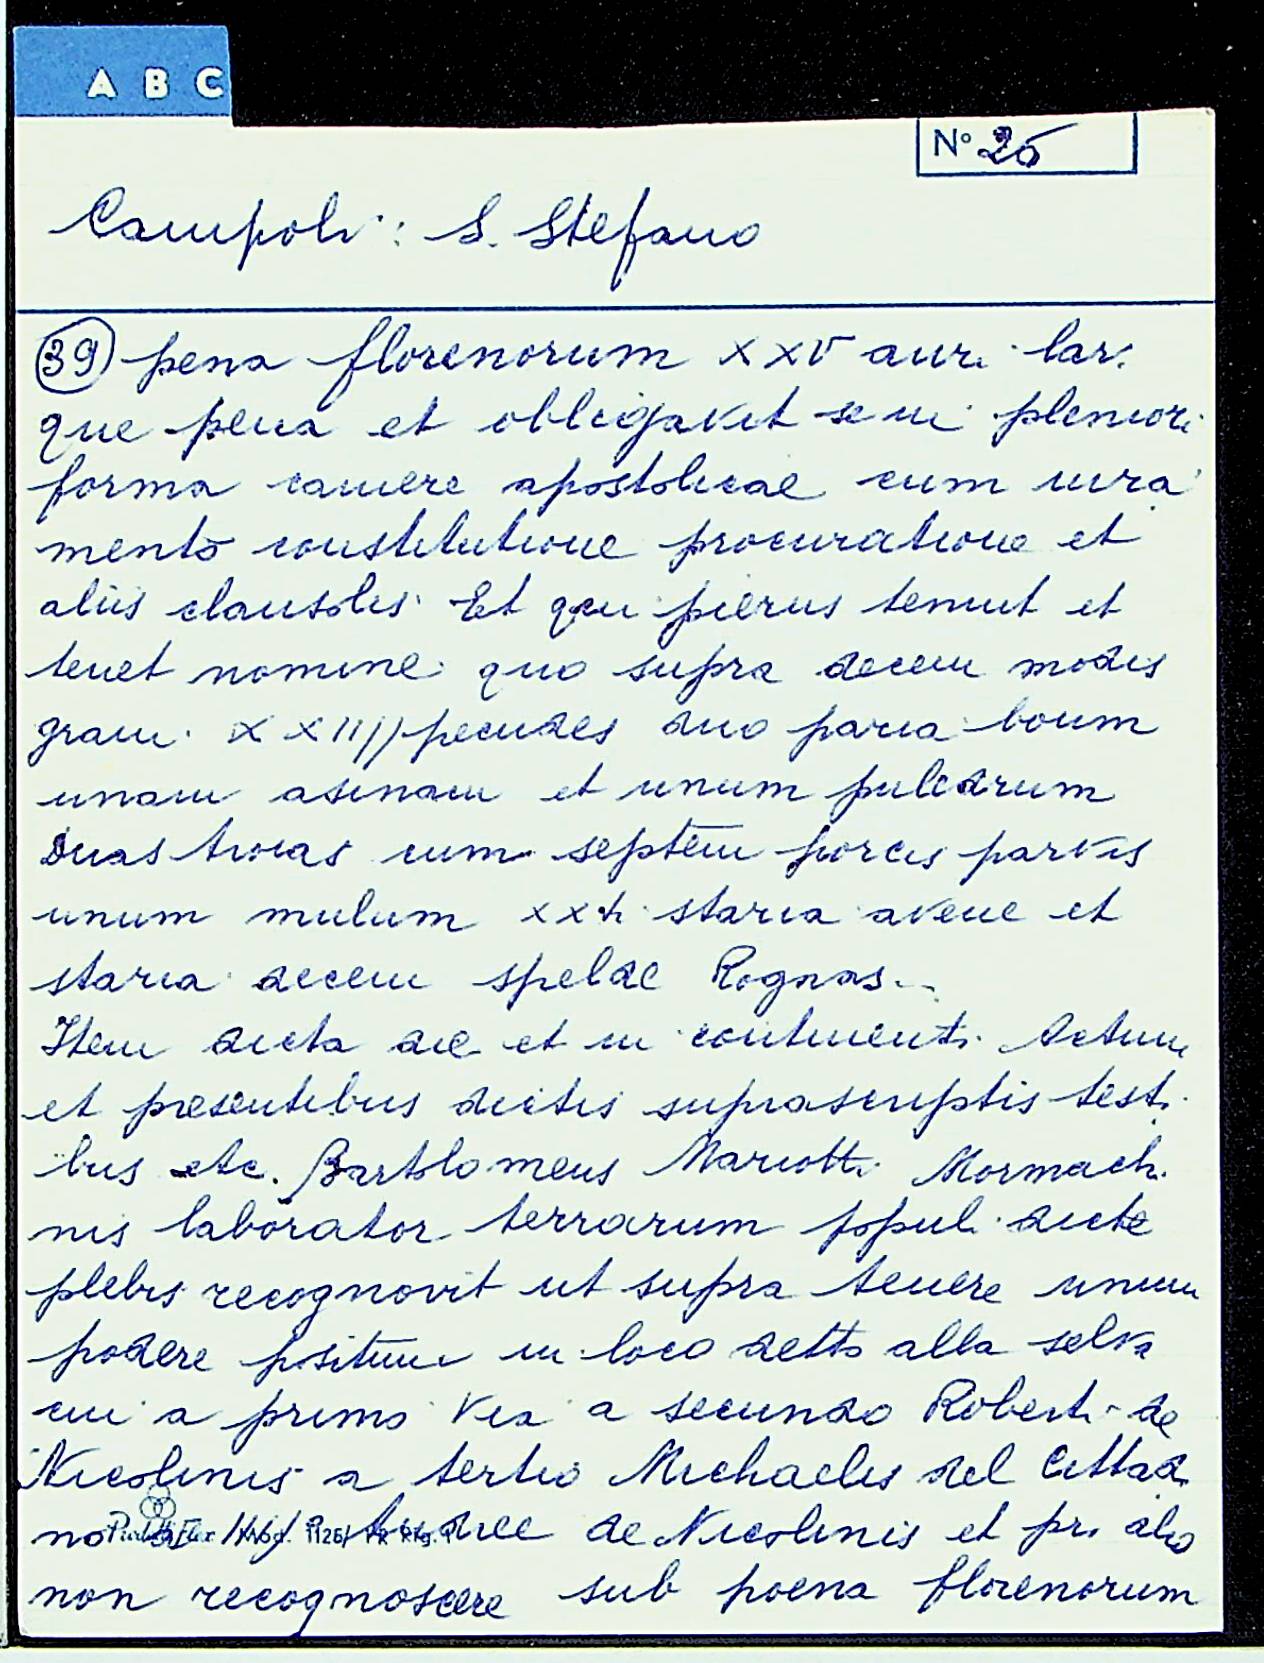 A B C
N° 25
Campoli: S. Stefano
39 pena florenorum XXV auri lar.
que pena et obligavit se in pleniori
forma camere apostolicae cum iura
mento constitutione procuratione et
aliis clausolis. Et qui pierus tenuit et
tenet nomine quo supra decem modis
grani XXIIII pecudes duo paria boum
unam asinam et unum puledrum
duas troias cum septem porcis parvis
unum mulum staria avene et
staria decem speldae Rognas..
Item dicta die et in continenti. Actum
et presentibus dictis suprascriptis testi
bus etc. Bartolomeus Mariotti Mormachi
nis laborator terrarum populi dicte
plebis recognovit ut supra tenere unum
podere positum in loco detto alla selva
cui a primo via a secundo Roberti de
Nicolinis a tertio Michaelis del Cittad
no a de Nicolinis et pro alio
non recognoscere sub poena florenorum